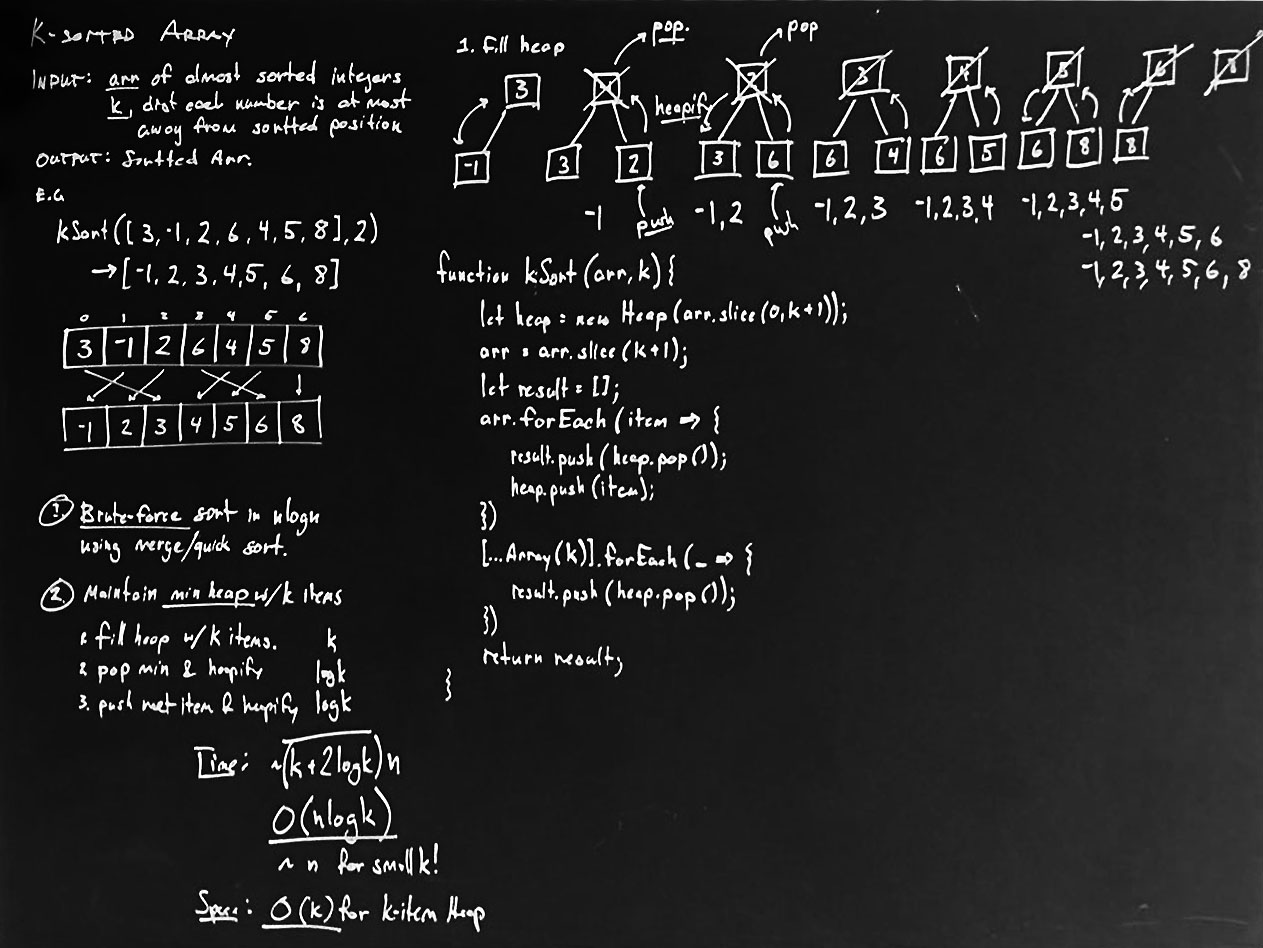 K-SORTED ARRAY
INPUT: arr of almost sorted integers
k, dist each number is at most
away from sortted position
OUTPUT: Sortted Arr.
E.G
kSort([3,-1,2,6,4,5,8],2)
→[-1,2,3,4,5,6,8]
0 1 2 3 4 5 6
3 -1 2 6 4 5 8
-1 2 3 4 5 6 8
1. Brute-force sort in nlogn
using merge/quick sort.
2. Maintain min heap w/k items
1. fill heap w/ k items. k
2. pop min & heapify logk
3. push next item & heapify logk
Time: ~(k+2logk)n
O(nlogk)
~ n for small k!
Space: O(k) for k-item Heap
1. Fill heap
pop. pop
3 2 3 4 5 6 8
heapify
-1 3 2 3 6 6 4 6 5 6 8 8
push push
-1 -1,2 -1,2,3 -1,2,3,4 -1,2,3,4,5
-1,2,3,4,5,6
-1,2,3,4,5,6,8
function kSort(arr,k){
let heap = new Heap(arr.slice(0,k+1));
arr = arr.slice(k+1);
let result = [];
arr.forEach(item => {
result.push(heap.pop());
heap.push(item);
})
[...Array(k)].forEach(_ => {
result.push(heap.pop());
})
return result;
}